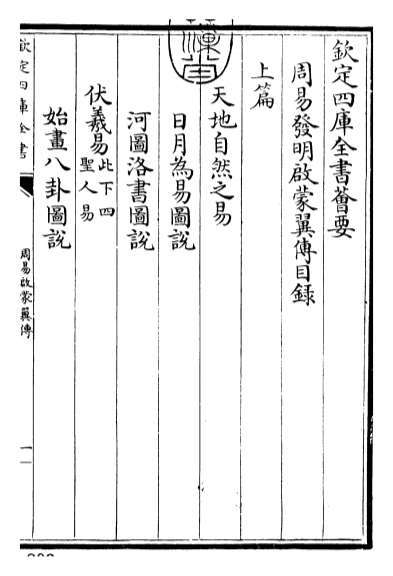 欽定四庫全書薈要
周易發明啟蒙翼傳目録
上篇
天地自然之易
日月為易圖說
河圖洛書圖說
伏羲易此下四
聖人易
始畫八卦圖說
欽定四庫全書
周易啟蒙翼傳
一